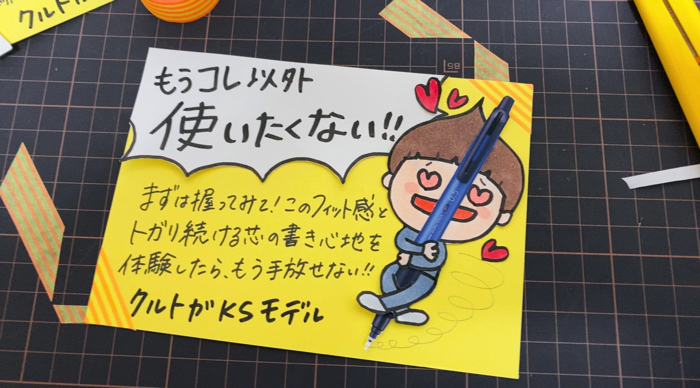 クルトガ
もうコレ以外
使いたくない!!
まずは握ってみて!このフィット感と
トガり続ける芯の書き心地を
体験したら、もう手放せない!!
クルトガKSモデル